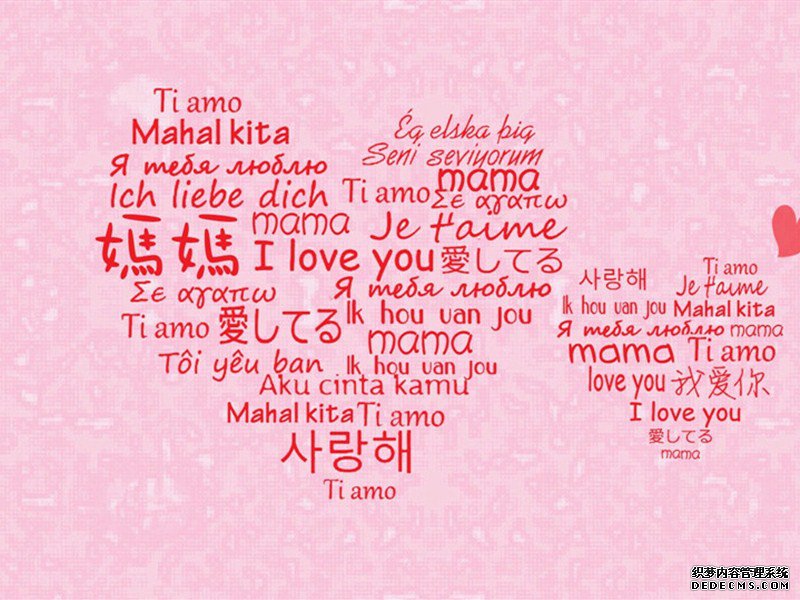 Ti amo
Mahal kita
Ég elska þig
Я тебя люблю
Seni seviyorum
Ich liebe dich
Ti amo
mama
Σε αγαπω
mama
Je t'aime
媽媽
I love you
愛してる
Σε αγαπω
Я тебя люблю
Ti amo
愛してる
Ik hou van jou
mama
Tôi yêu ban
Ik hou van jou
Aku cinta kamu
Mahal kita
Ti amo
사랑해
Ti amo
사랑해
Ti amo
Je t'aime
Ik hou van jou
Mahal kita
Я тебя люблю
mama
mama
Ti amo
love you
我爱你
I love you
愛してる
mama
织梦内容管理系统
DEDECMS.COM